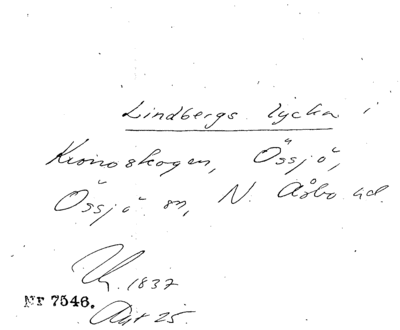 Lindbergs lycka i
Kronoskogen, Össjö,
Össjö sn, N. Åsbo hd.
1837
Nr 7546.
Akt 25.